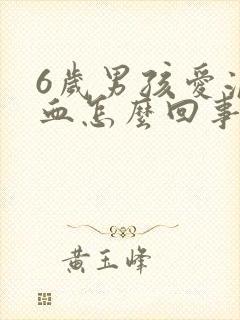 6歲男孩愛
血怎麼回事
黃玉峰